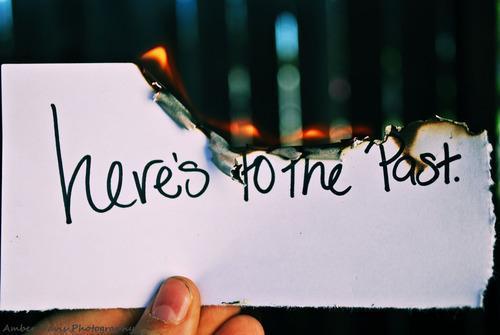 here's to the Past.
Amber Davis Photography